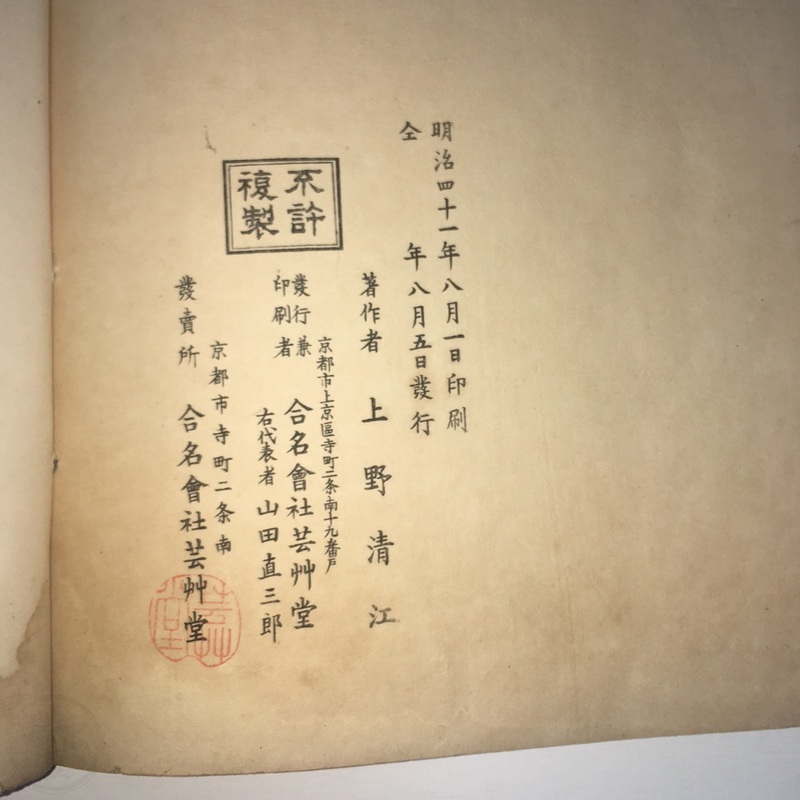 明治四十一年八月一日印刷
仝 年八月五日發行
著作者 上野清江
不許
複製
京都市上京區寺町二条南十九番戸
發行兼
印刷者
合名會社芸艸堂
右代表者 山田直三郎
京都市寺町二条南
發賣所 合名會社芸艸堂
芸艸堂